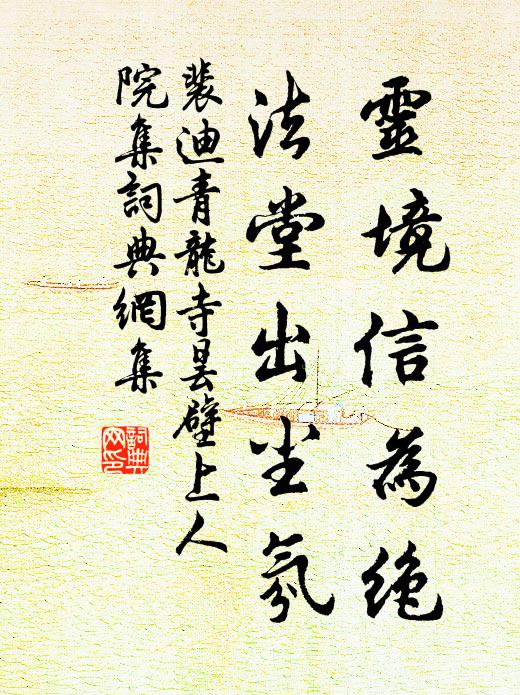 靈境信為絶
法堂出尘氛
裴迪青龍寺昙壁上人
院集詞典網集
詞典
网印